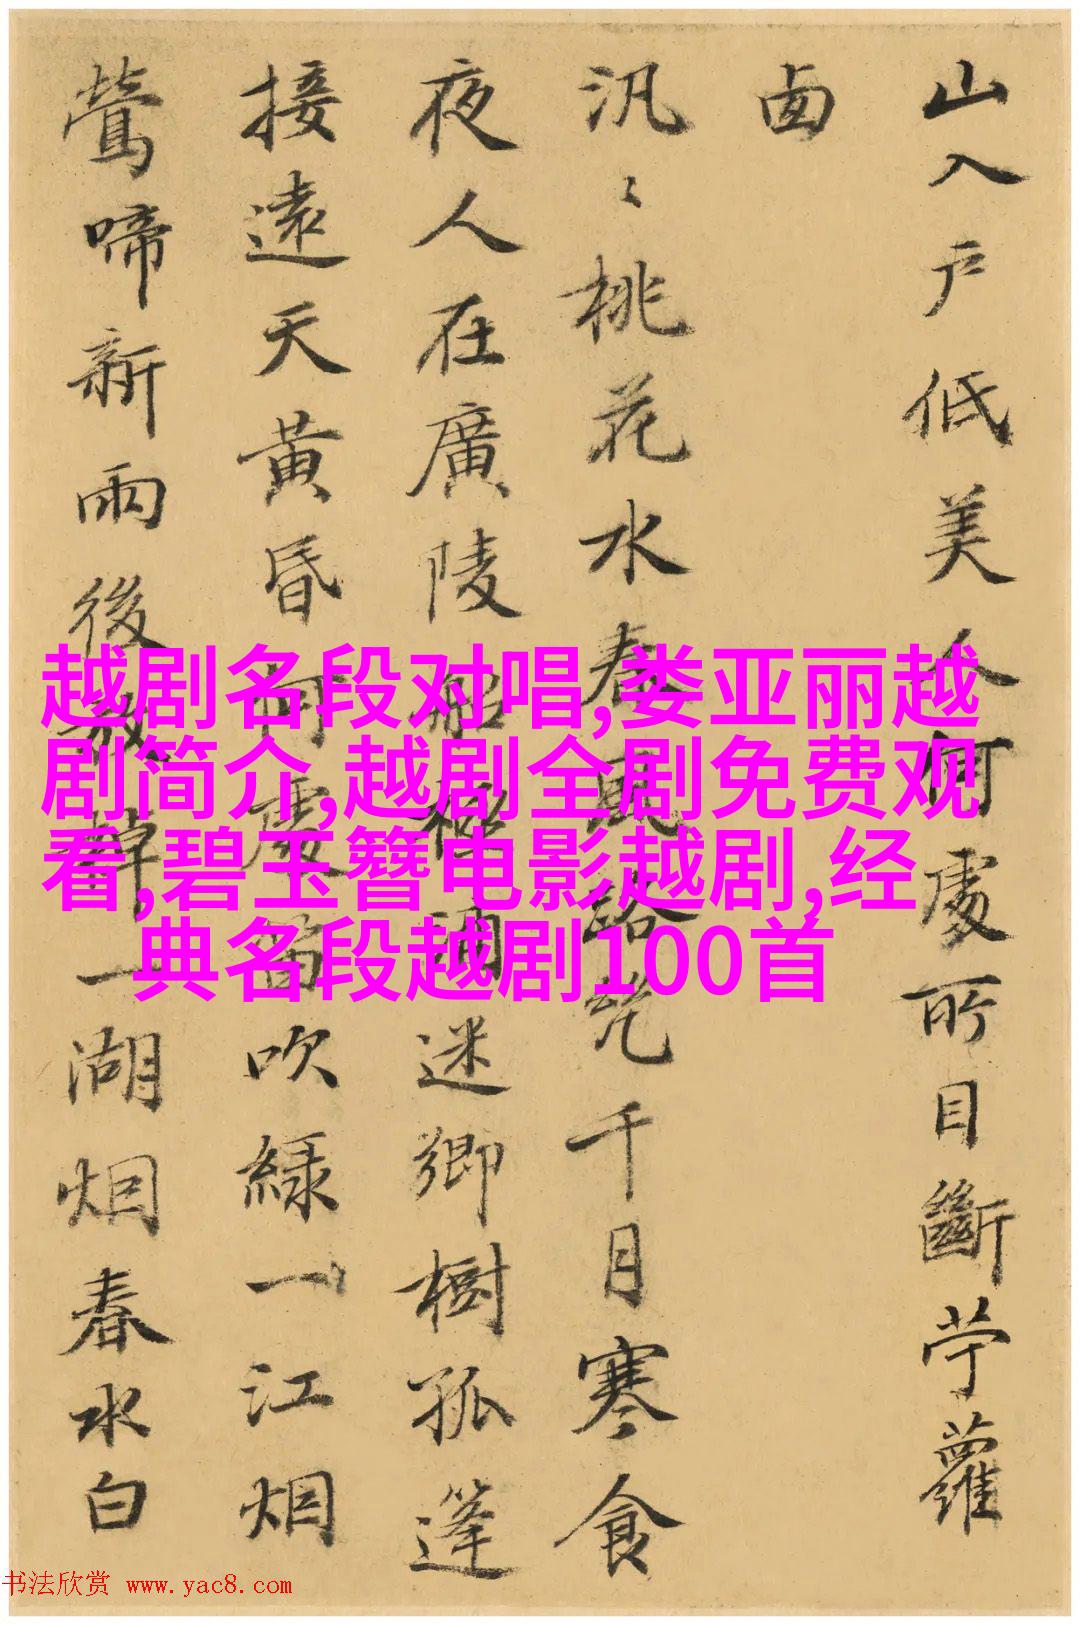 山入户低美人何處所目斷苧蘿
汎〻桃花水春風路幾千月寒食
夜人在廣陵船極浦迷鄉樹孤篷
接遠天黃昏何處笛吹綠一江烟
鶯啼新雨後放棹一湖烟春水白
越剧名段对唱,娄亚丽越
剧简介,越剧全剧免费观
看,碧玉簪电影越剧,经
典名段越剧100首
书法欣赏 www.yac8.com